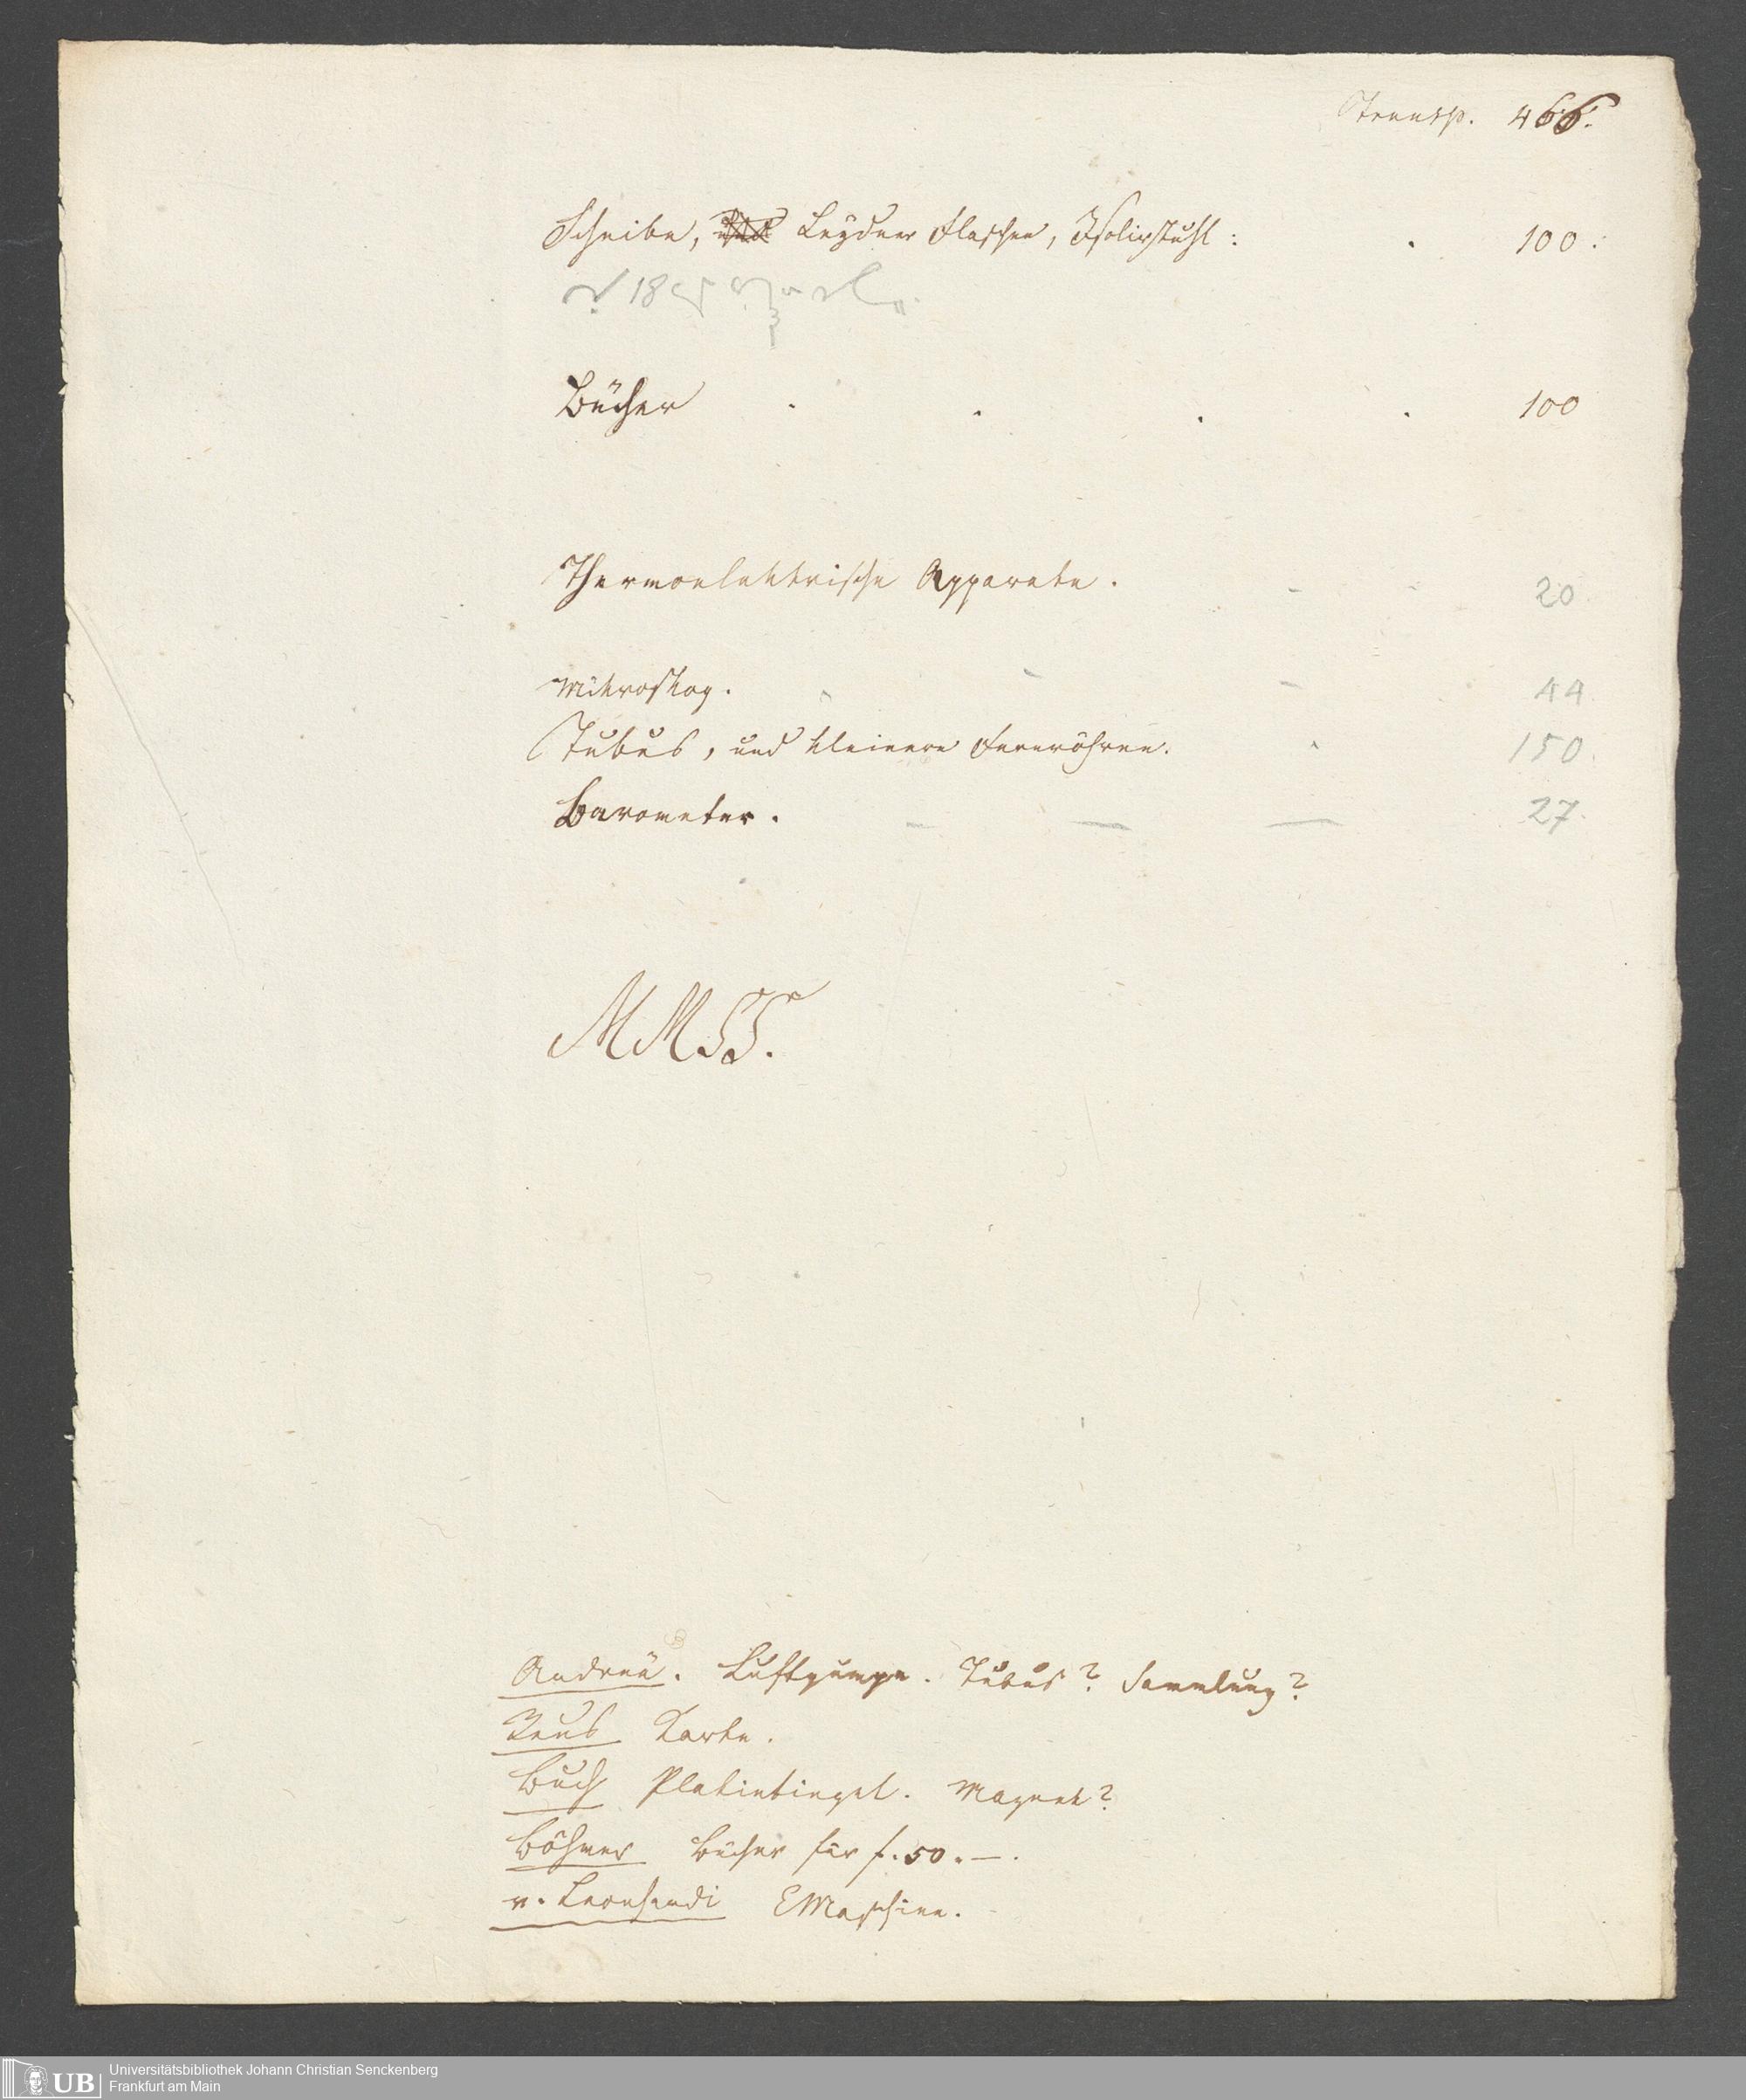 Transp. 466.
Scheibe, und Leydner Flaschen, Isolirstuhl: . 100:
Bücher . . . . 100
Thermoelektrische Apparate. - - 20
Mikroskop. - - - 44
Tubus, und kleinere Fernröhren. - 150.
Barometer. - - - 27.
Andreä. Luftpumpe. Tubus? Sammlung?
Karte.
Buch Platintiegel. Magnet?
Böhmer Bücher für f. 50. —.
v. Leonhardi EMaschine.
UB Universitätsbibliothek Johann Christian Senckenberg
Frankfurt am Main